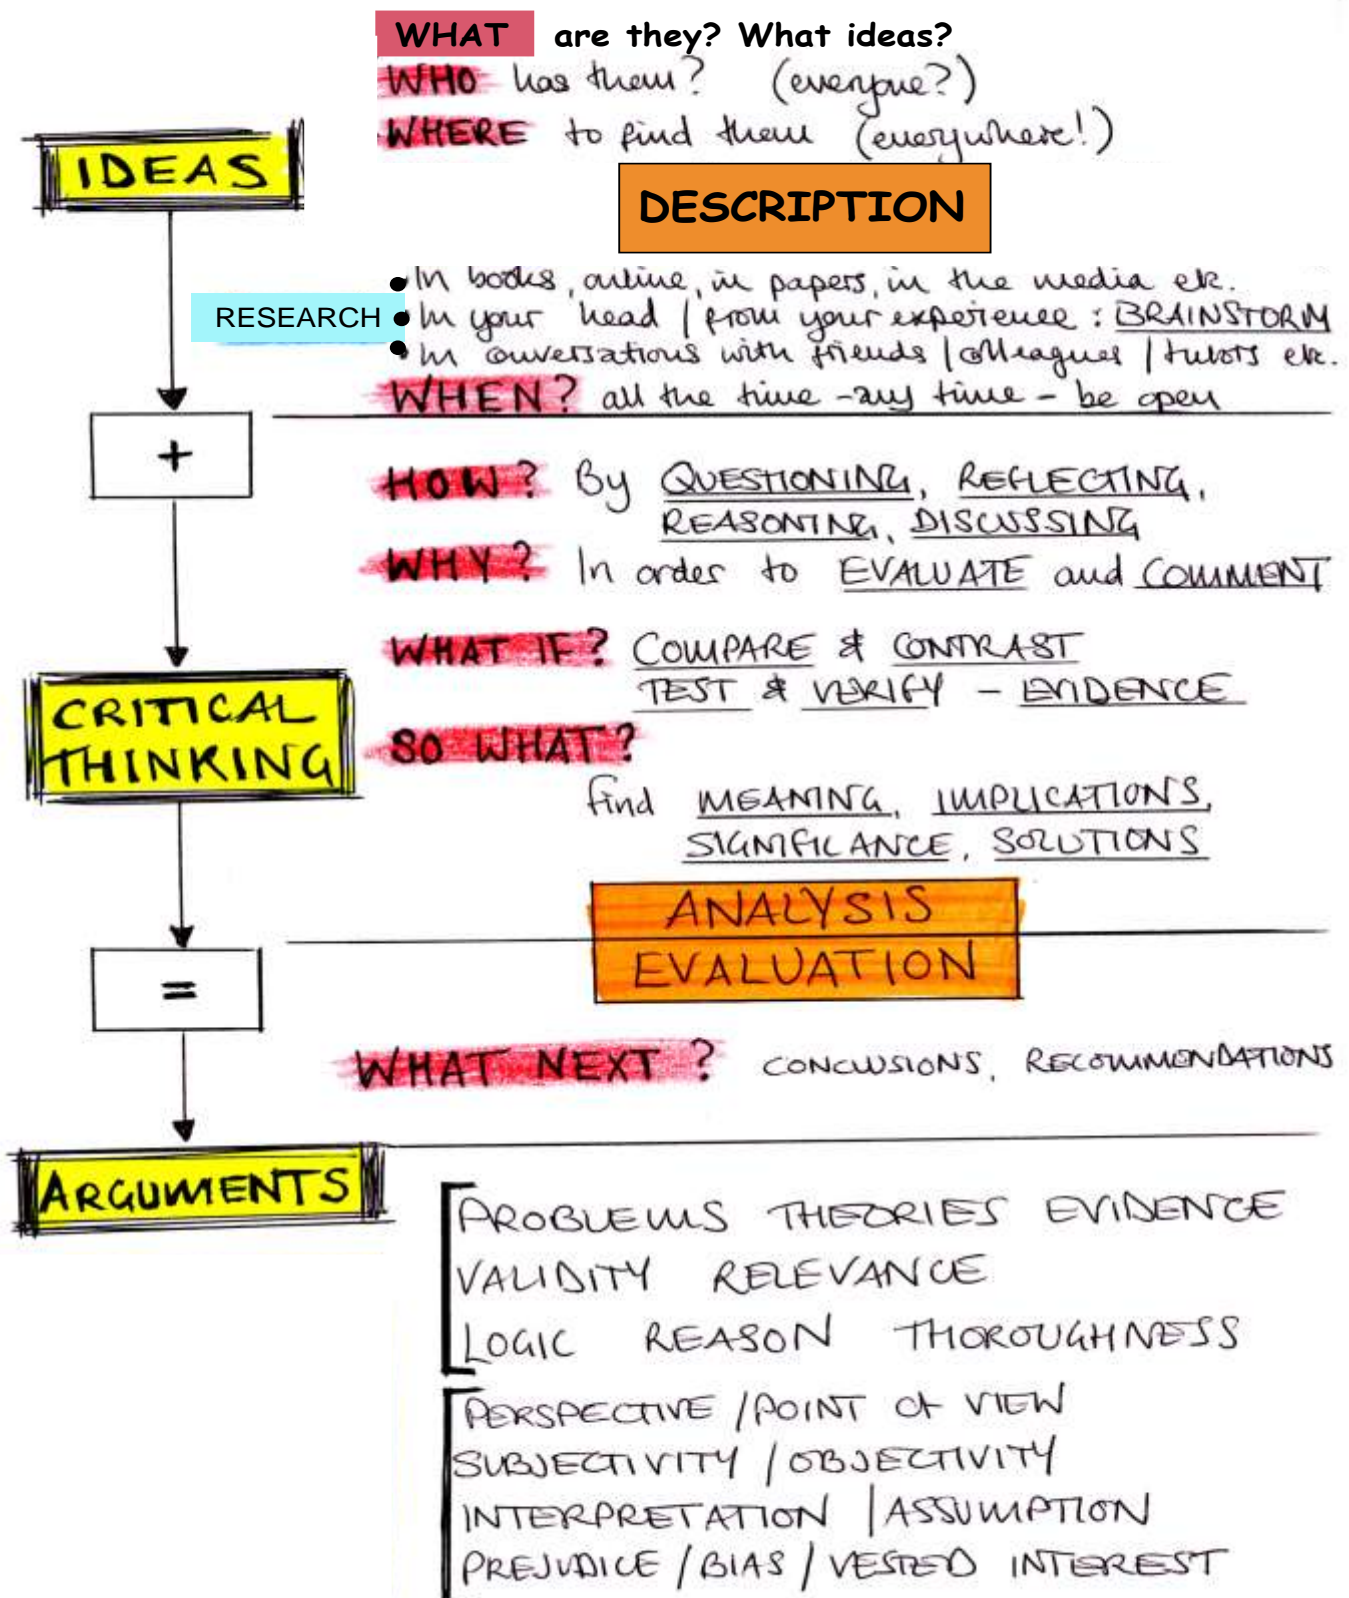 WHAT are they? What ideas?
WHO has them? (everyone?)
WHERE to find them (everywhere!)
IDEAS
DESCRIPTION
• In books, online, in papers, in the media etc.
RESEARCH • In your head / from your experience : BRAINSTORM
• In conversations with friends / colleagues / tutors etc.
WHEN? all the time - any time - be open
+
HOW? By QUESTIONING, REFLECTING,
REASONING, DISCUSSING
WHY? In order to EVALUATE and COMMENT
WHAT IF? COMPARE & CONTRAST
TEST & VERIFY - EVIDENCE
CRITICAL
THINKING
SO WHAT?
find MEANING, IMPLICATIONS,
SIGNIFICANCE, SOLUTIONS
ANALYSIS
EVALUATION
=
WHAT NEXT? CONCLUSIONS, RECOMMENDATIONS
ARGUMENTS
PROBLEMS THEORIES EVIDENCE
VALIDITY RELEVANCE
LOGIC REASON THOROUGHNESS
PERSPECTIVE / POINT OF VIEW
SUBJECTIVITY / OBJECTIVITY
INTERPRETATION / ASSUMPTION
PREJUDICE / BIAS / VESTED INTEREST